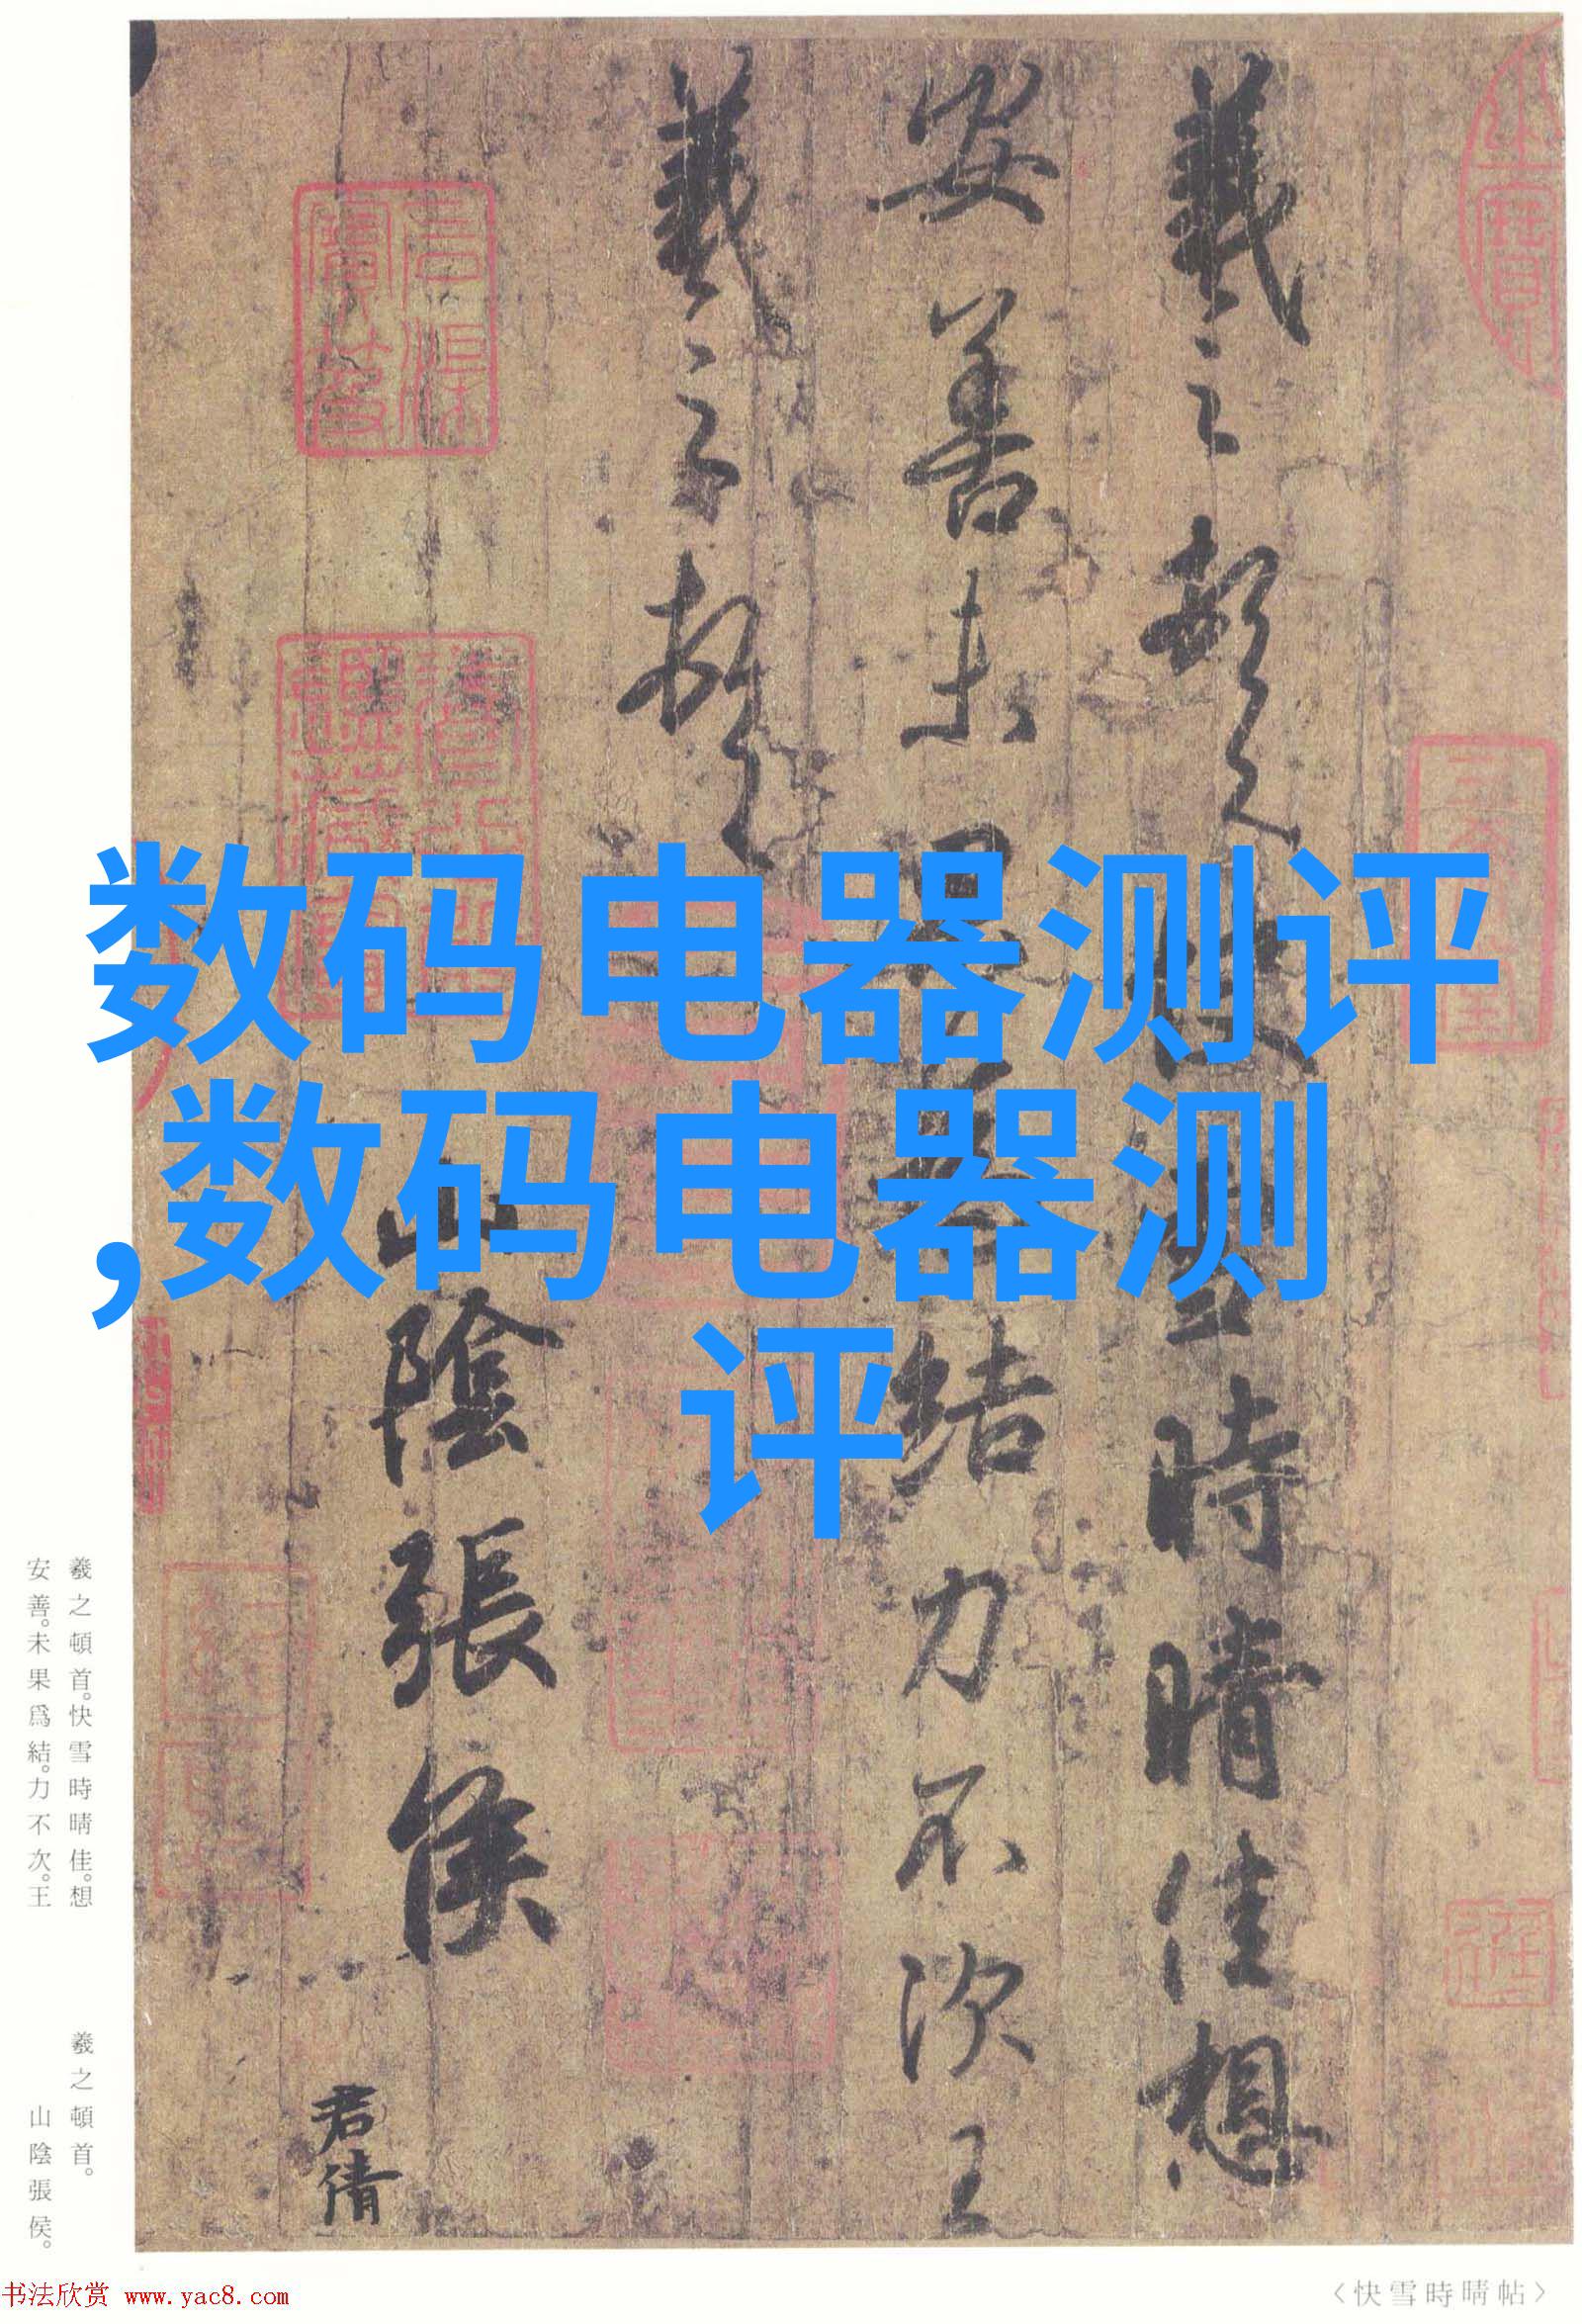 羲之頓首快雪時晴佳想
安善未果為結力不次王
羲之頓首
山陰張侯
君倩
数码电器测评
,数码电器测
评
羲之頓首。快雪時晴佳。想
安善。未果爲結。力不次。王
羲之頓首。
山陰張侯。
书法欣赏 www.yac8.com
〈快雪時晴帖〉